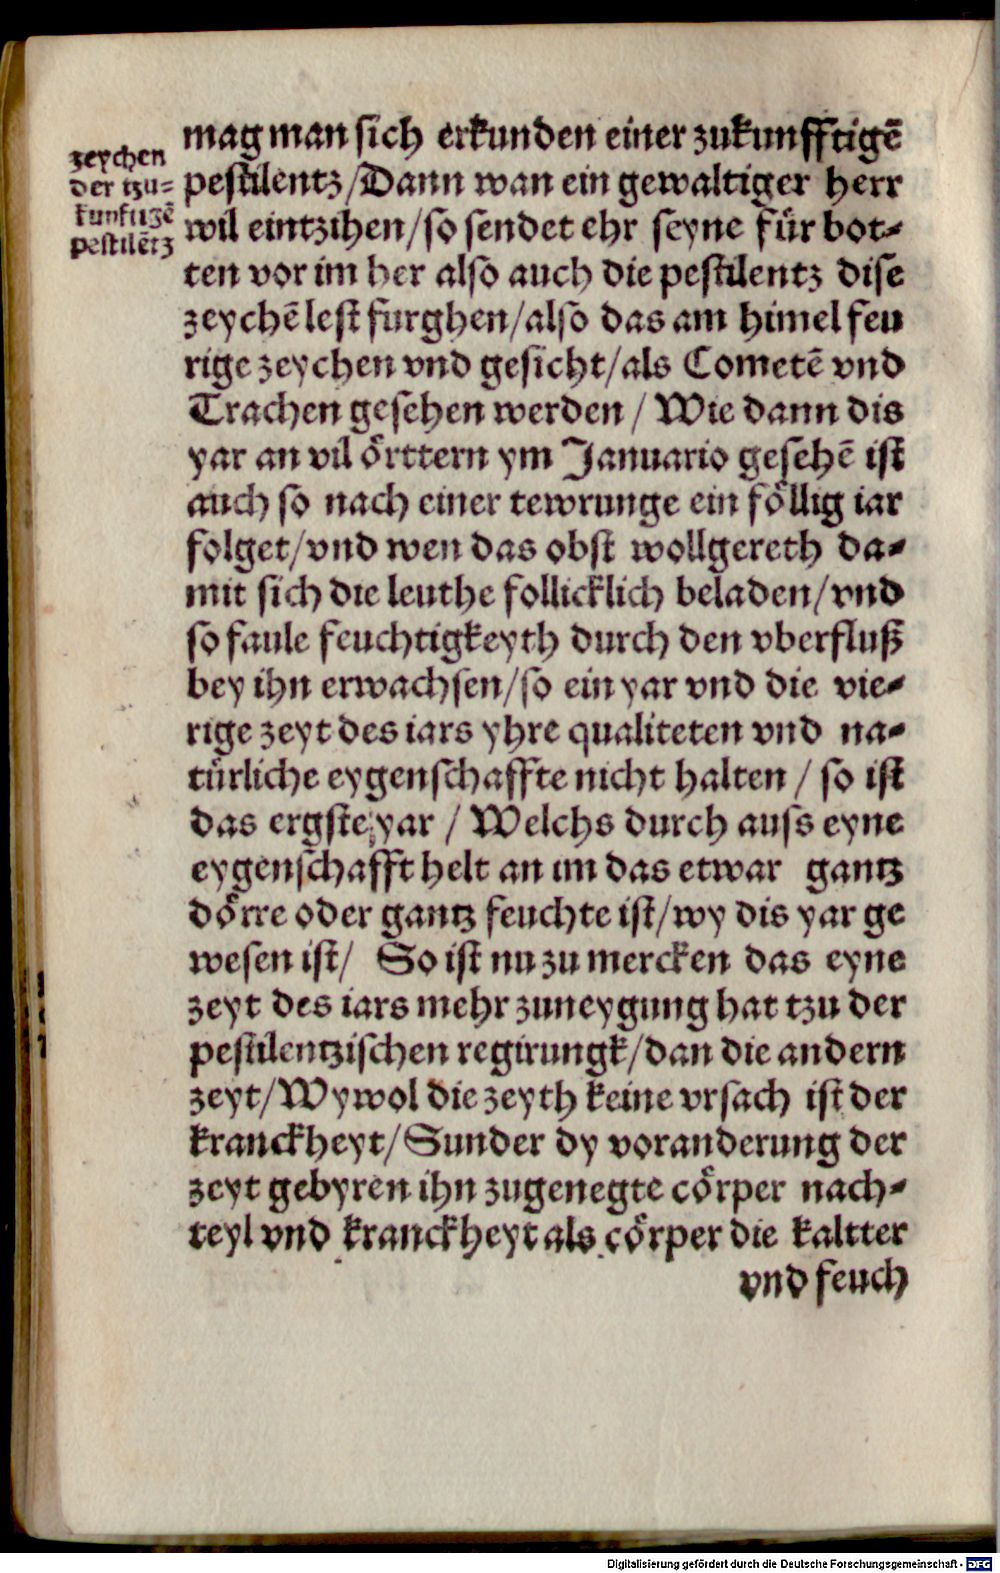 zeychen
der tzu-
kunftigē
pestilētz
mag man sich erkunden einer zukunfftigē
pestilentz/Dann wan ein gewaltiger herr
wil eintzihen/so sendet ehr seyne für bot-
ten vor im her also auch die pestilentz dise
zeychē lest furghen/also das am himel feu
rige zeychen vnd gesicht/als Cometē vnd
Trachen gesehen werden / Wie dann dis
yar an vil örttern ym Januario gesehē ist
auch so nach einer tewrunge ein föllig iar
folget/vnd wen das obst wollgereth da-
mit sich die leuthe follicklich beladen/vnd
so faule feuchtigkeyth durch den vberfluß
bey ihn erwachsen/so ein yar vnd die vie-
rige zeyt des iars yhre qualiteten vnd na-
türliche eygenschaffte nicht halten / so ist
das ergste yar / Welchs durch auss eyne
eygenschafft helt an im das etwar gantz
dörre oder gantz feuchte ist/wy dis yar ge
wesen ist/ So ist nu zu mercken das eyne
zeyt des iars mehr zuneygung hat tzu der
pestilentzischen regirungk/dan die andern
zeyt/Wywol die zeyth keine vrsach ist der
kranckheyt/Sunder dy voranderung der
zeyt gebyren ihn zugenegte cörper nach-
teyl vnd kranckheyt als cörper die kaltter
vnd feuch
Digitalisierung gefördert durch die Deutsche Forschungsgemeinschaft - DFG